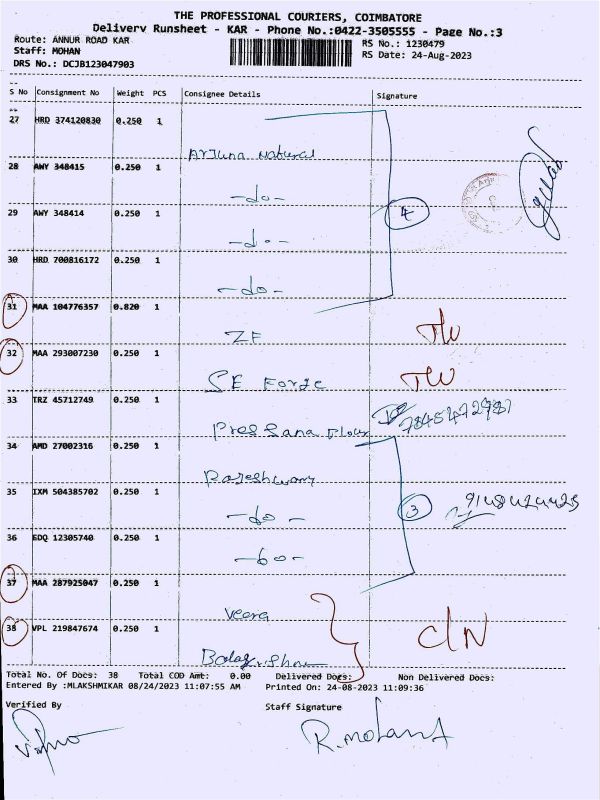 THE PROFESSIONAL COURIERS, COIMBATORE
Delivery Runsheet - KAR - Phone No.:0422-3505555 - Page No.:3
Route: ANNUR ROAD KAR RS No.: 1230479
Staff: MOHAN RS Date: 24-Aug-2023
DRS No.: DCJB123047903
S No Consignment No Weight PCS Consignee Details Signature
27 HRD 374120830 0.250 1
Arjuna Natural
28 AWY 348415 0.250 1
-do-
29 AWY 348414 0.250 1
-do-
4
30 HRD 700816172 0.250 1
-do-
31 MAA 104776357 0.820 1
ZF
32 MAA 293007230 0.250 1
SE Forge
33 TRZ 45712749 0.250 1
34 AMD 27002316 0.250 1
35 IXM 504385702 0.250 1
-do-
3
36 EDQ 12305740 0.250 1
-do-
37 MAA 287925047 0.250 1
Veera
38 VPL 219847674 0.250 1
C/N
Total No. Of Docs: 38 Total COD Amt: 0.00 Delivered Docs: Non Delivered Docs:
Entered By :MLAKSHMIKAR 08/24/2023 11:07:55 AM Printed On: 24-08-2023 11:09:36
Verified By Staff Signature
R.Mohan